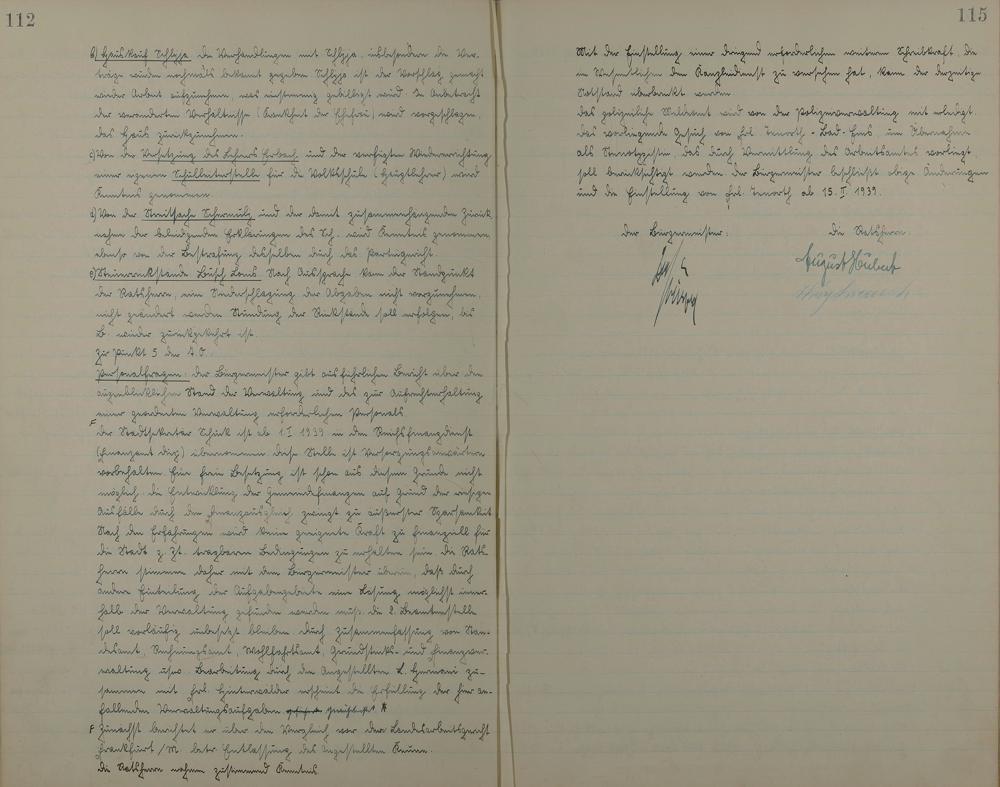 112
b) Hauskauf Schlypp. Die Verhandlungen mit Schlypp, insbesondere die Ver-
träge wurden nochmals bekannt gegeben. Schlypp ist der Vorschlag gemacht
wieder Arbeit aufzunehmen, was einstimmig gebilligt wird. In Anbetracht
der veränderten Verhältnisse (Krankheit der Ehefrau) wird vorgeschlagen,
das Haus zurückzunehmen.
c) Von der Versetzung des Lehrers Erbach und der verfügten Wiedererrichtung
einer eigenen Schulleiterstelle für die Volksschule (Hauptlehrer) wird
Kenntnis genommen.
d) Von der Streitsache und der damit zusammenhängenden Zurück-
nahme der beleidigenden Erklärungen des Sch. wird Kenntnis genommen
ebenso von der Bestrafung desselben durch das Parteigericht.
e) Steuerrückstände Busch Louis. Nach Aussprache kam der Standpunkt
der Ratsherrn, eine Niederschlagung der Abgaben nicht vorzunehmen,
nicht geändert werden. Stundung der Rückstände soll erfolgen, bis
B. wieder zurückgekehrt ist.
Zu Punkt 5 der T.O.
Personalfragen: Der Bürgermeister gibt ausführlichen Bericht über den
augenblicklichen Stand der Verwaltung und des zur Aufrechterhaltung
einer geordneten Verwaltung erforderlichen Personals.
F
Der Stadtsekretär Schuck ist ab 1.I 1939 in den Reichsfinanzdienst
(Finanzamt Diez) übernommen. Diese Stelle ist Versorgungsanwärtern
vorbehalten. Eine freie Besetzung ist schon aus diesem Grunde nicht
möglich. Die Entwicklung der Gemeindefinanzen auf Grund der riesigen
Ausfälle durch den Finanzausgleich zwingt zu äußerster Sparsamkeit.
Nach den Erfahrungen wird keine geeignete Kraft zu finanziell für
die Stadt z. Zt. tragbaren Bedingungen zu erhalten sein. Die Rats-
herrn stimmen daher mit dem Bürgermeister überein, daß durch
andere Einteilung der Aufgabengebiete eine Lösung möglichst inner-
halb der Verwaltung gefunden werden muß. Die 2. Beamtenstelle
soll vorläufig unbesetzt bleiben. Durch Zusammenfassung von Stan-
desamt, Rechnungsamt, Wohlfahrtsamt, Grundstücks- und Finanzver-
waltung usw. Bearbeitung durch den Angestellten L. Hermani zu-
sammen mit Frl. Hinterwälder erscheint die Erfüllung der hier an-
fallenden Verwaltungsaufgaben
F Zunächst berichtet er über den Vergleich vor dem Landesarbeitsgericht
Frankfurt/M. betr. Entlassung des Angestellten
Die Ratsherrn nehmen zustimmend Kenntnis.
115
Mit der Einstellung einer dringend erforderlichen weiteren Schreibkraft, die
im Wesentlichen den Kanzleidienst zu versehen hat, kann der derzeitige
Notstand überbrückt werden.
Das polizeiliche Meldeamt wird von der Polizeiverwaltung mit erledigt.
Das vorliegende Gesuch von Frl. Bad-Ems um Übernahme
als Stenotypistin, das durch Vermittlung des Arbeitsamtes vorliegt,
soll berücksichtigt werden. Der Bürgermeister beschließt obige Änderungen
und die Einstellung von Frl. ab 15.II 1939.
Der Bürgermeister:
Die Ratsherrn:
August Hubert